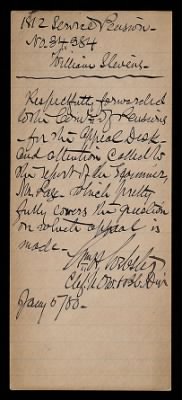 1812 Service Pension -
No. 34.384
William Stevens -
Respectfully forwarded
to the Com'r of Pensions
- for the Appeal Desk
and attention called to
the report of the Examiner,
Mr. which pretty
fully covers the question
on which appeal is
made -
Wm H. Webster
Chf.
Jany 5/80 -